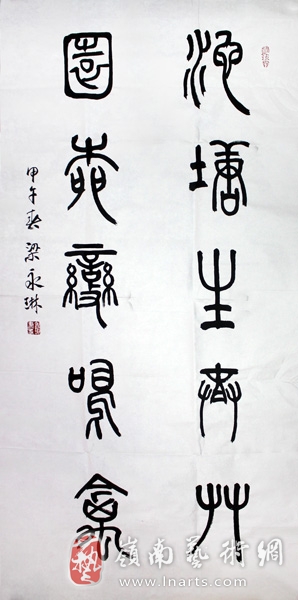 池塘生春艸
園柳變鳴禽
甲午春梁永琳
藝 嶺南藝術網
www.lnarts.com